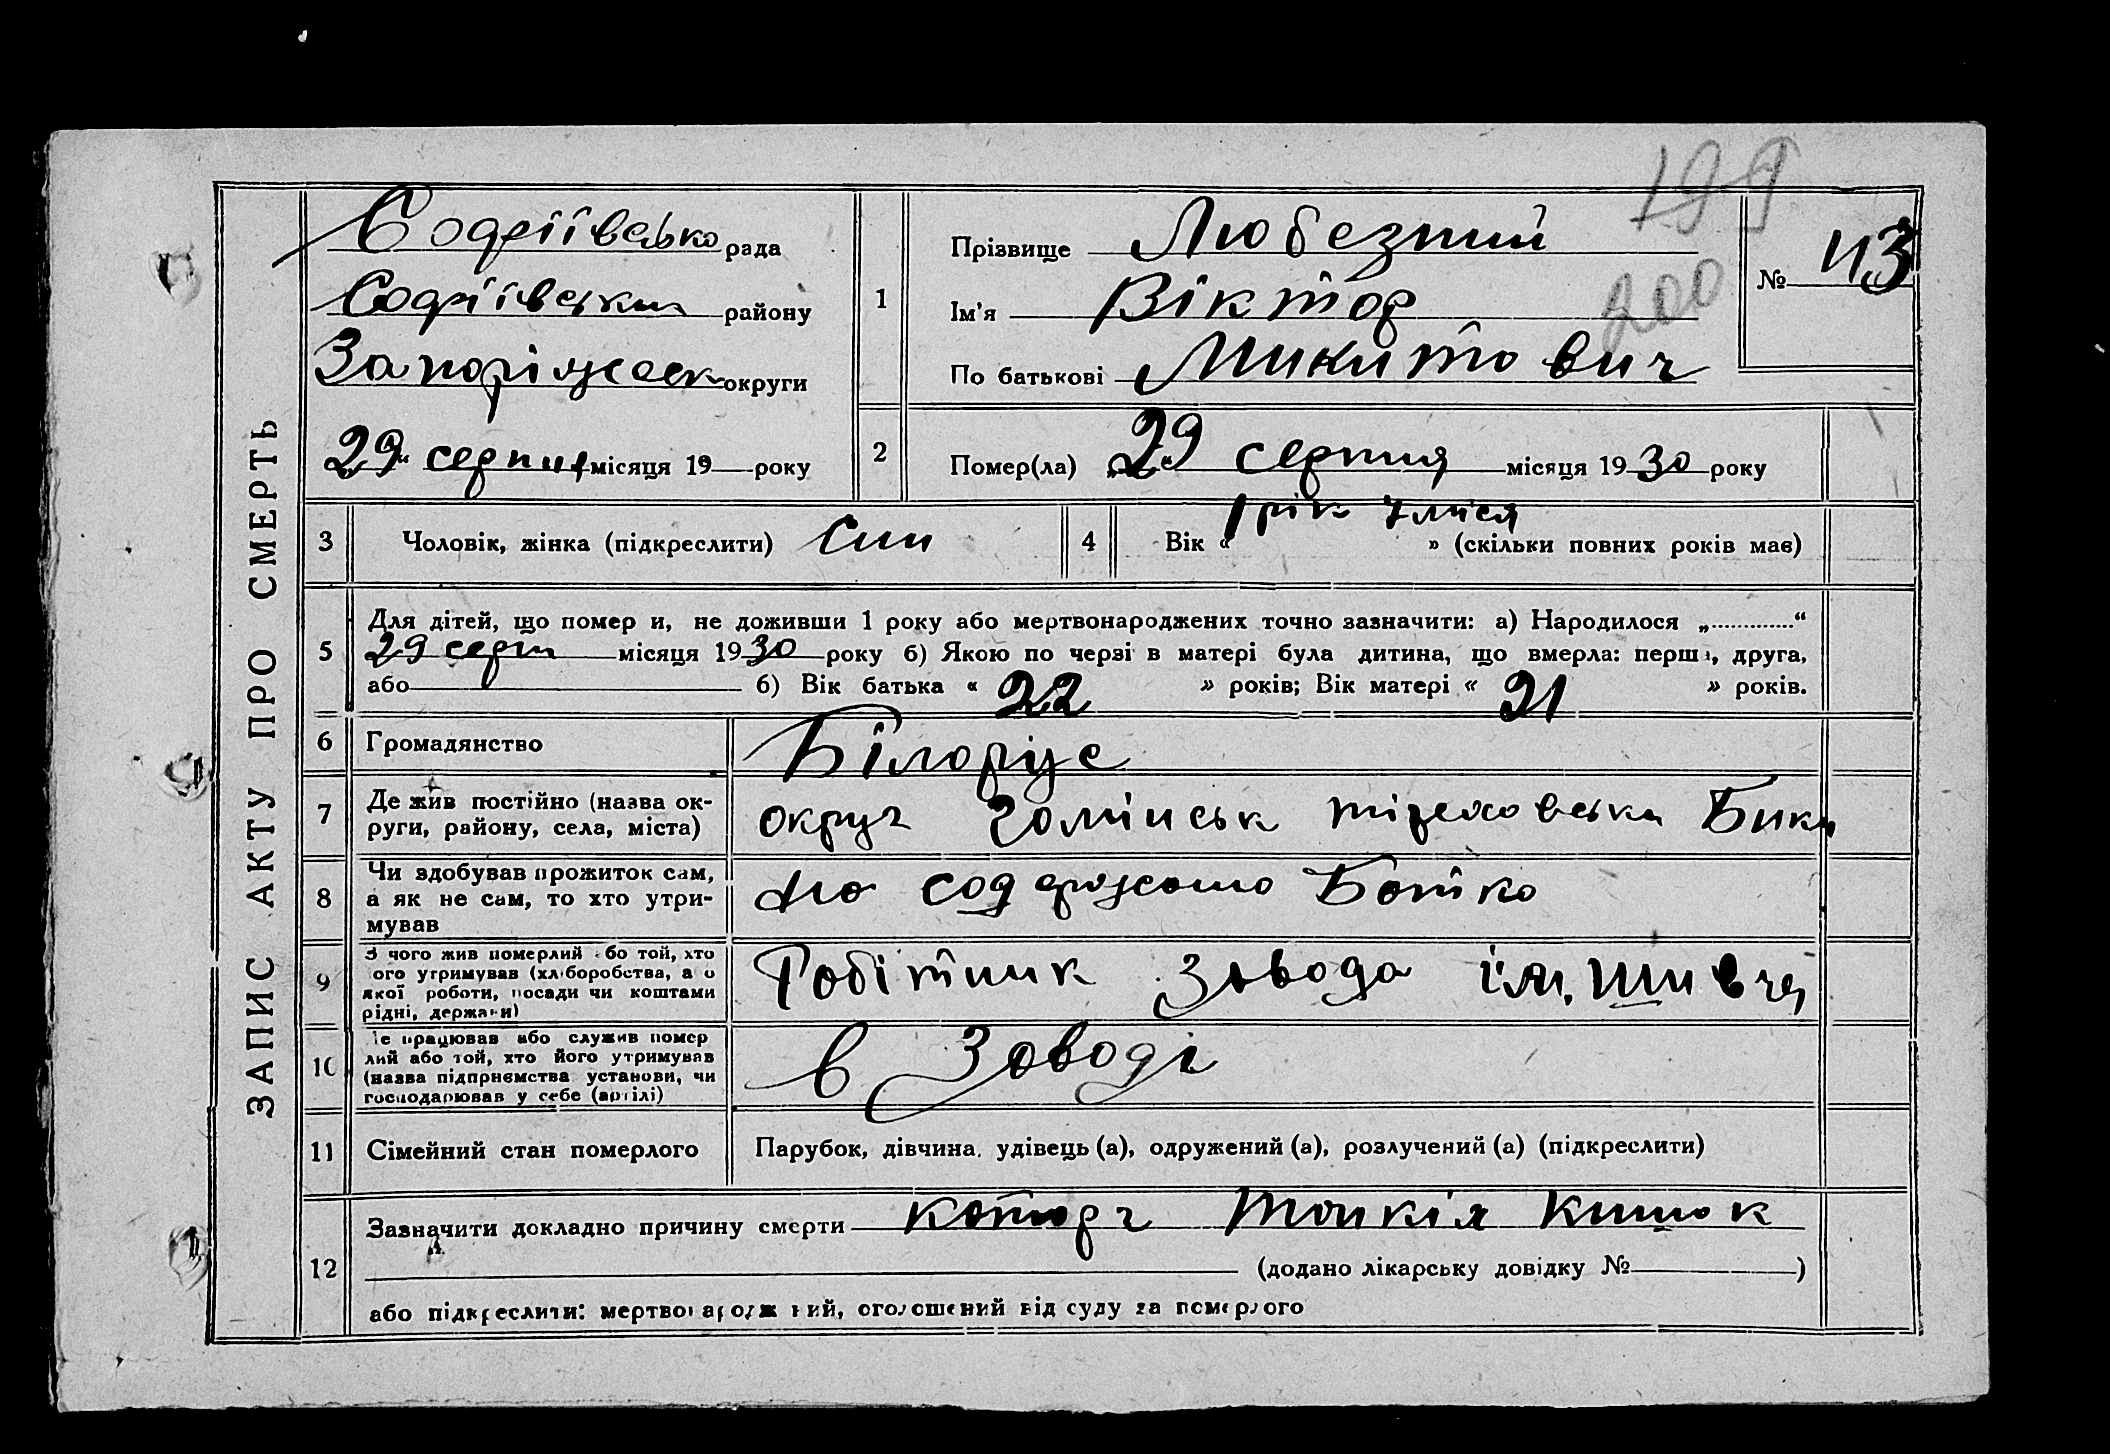 ЗАПИС АКТУ ПРО СМЕРТЬ
199
200
Софіївсько рада
Софіївськи району
Запоріжськ округи
29 серпня місяця 19 року
1
Прізвище Любезний
Ім'я Віктор
По батькові Микитович
№ 43
2
Помер(ла) 29 серпня місяця 1930 року
3 Чоловік, жінка (підкреслити) Син
4 Вік « 1 рік » (скільки повних років має)
5
Для дітей, що помер и, не доживши 1 року або мертвонароджених точно зазначити: а) Народилося „ “
29 серпн місяця 1930 року б) Якою по черзі в матері була дитина, що вмерла: перша, друга,
або б) Вік батька « 22 » років; Вік матері « 21 » років.
6 Громадянство Білорус
7
Де жив постійно (назва ок-
руги, району, села, міста)
округ Гомінськ
8
Чи здобував прожиток сам,
а як не сам, то хто утри-
мував
на содержанію Батко
9
З чого жив померлий або той, хто
ого утримував (хліборобства, а о
якої роботи, посади чи коштами
рідні, держави)
Робітник Завода ім.
10
е працював або служив помер
лий або той, хто його утримував
(назва підприємства установи, чи
господарював у себе (артілі)
в Заводі
11 Сімейний стан померлого Парубок, дівчина, удівець (а), одружений (а), розлучений (а) (підкреслити)
12
Зазначити докладно причину смерти катар тонкія кишок
(додано лікарську довідку № )
або підкреслити: мертвонароджений, оголошений від суду за померлого